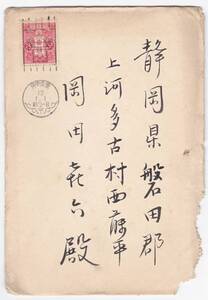 静岡県磐田郡
上河多古村西藤平
岡田㐂六殿